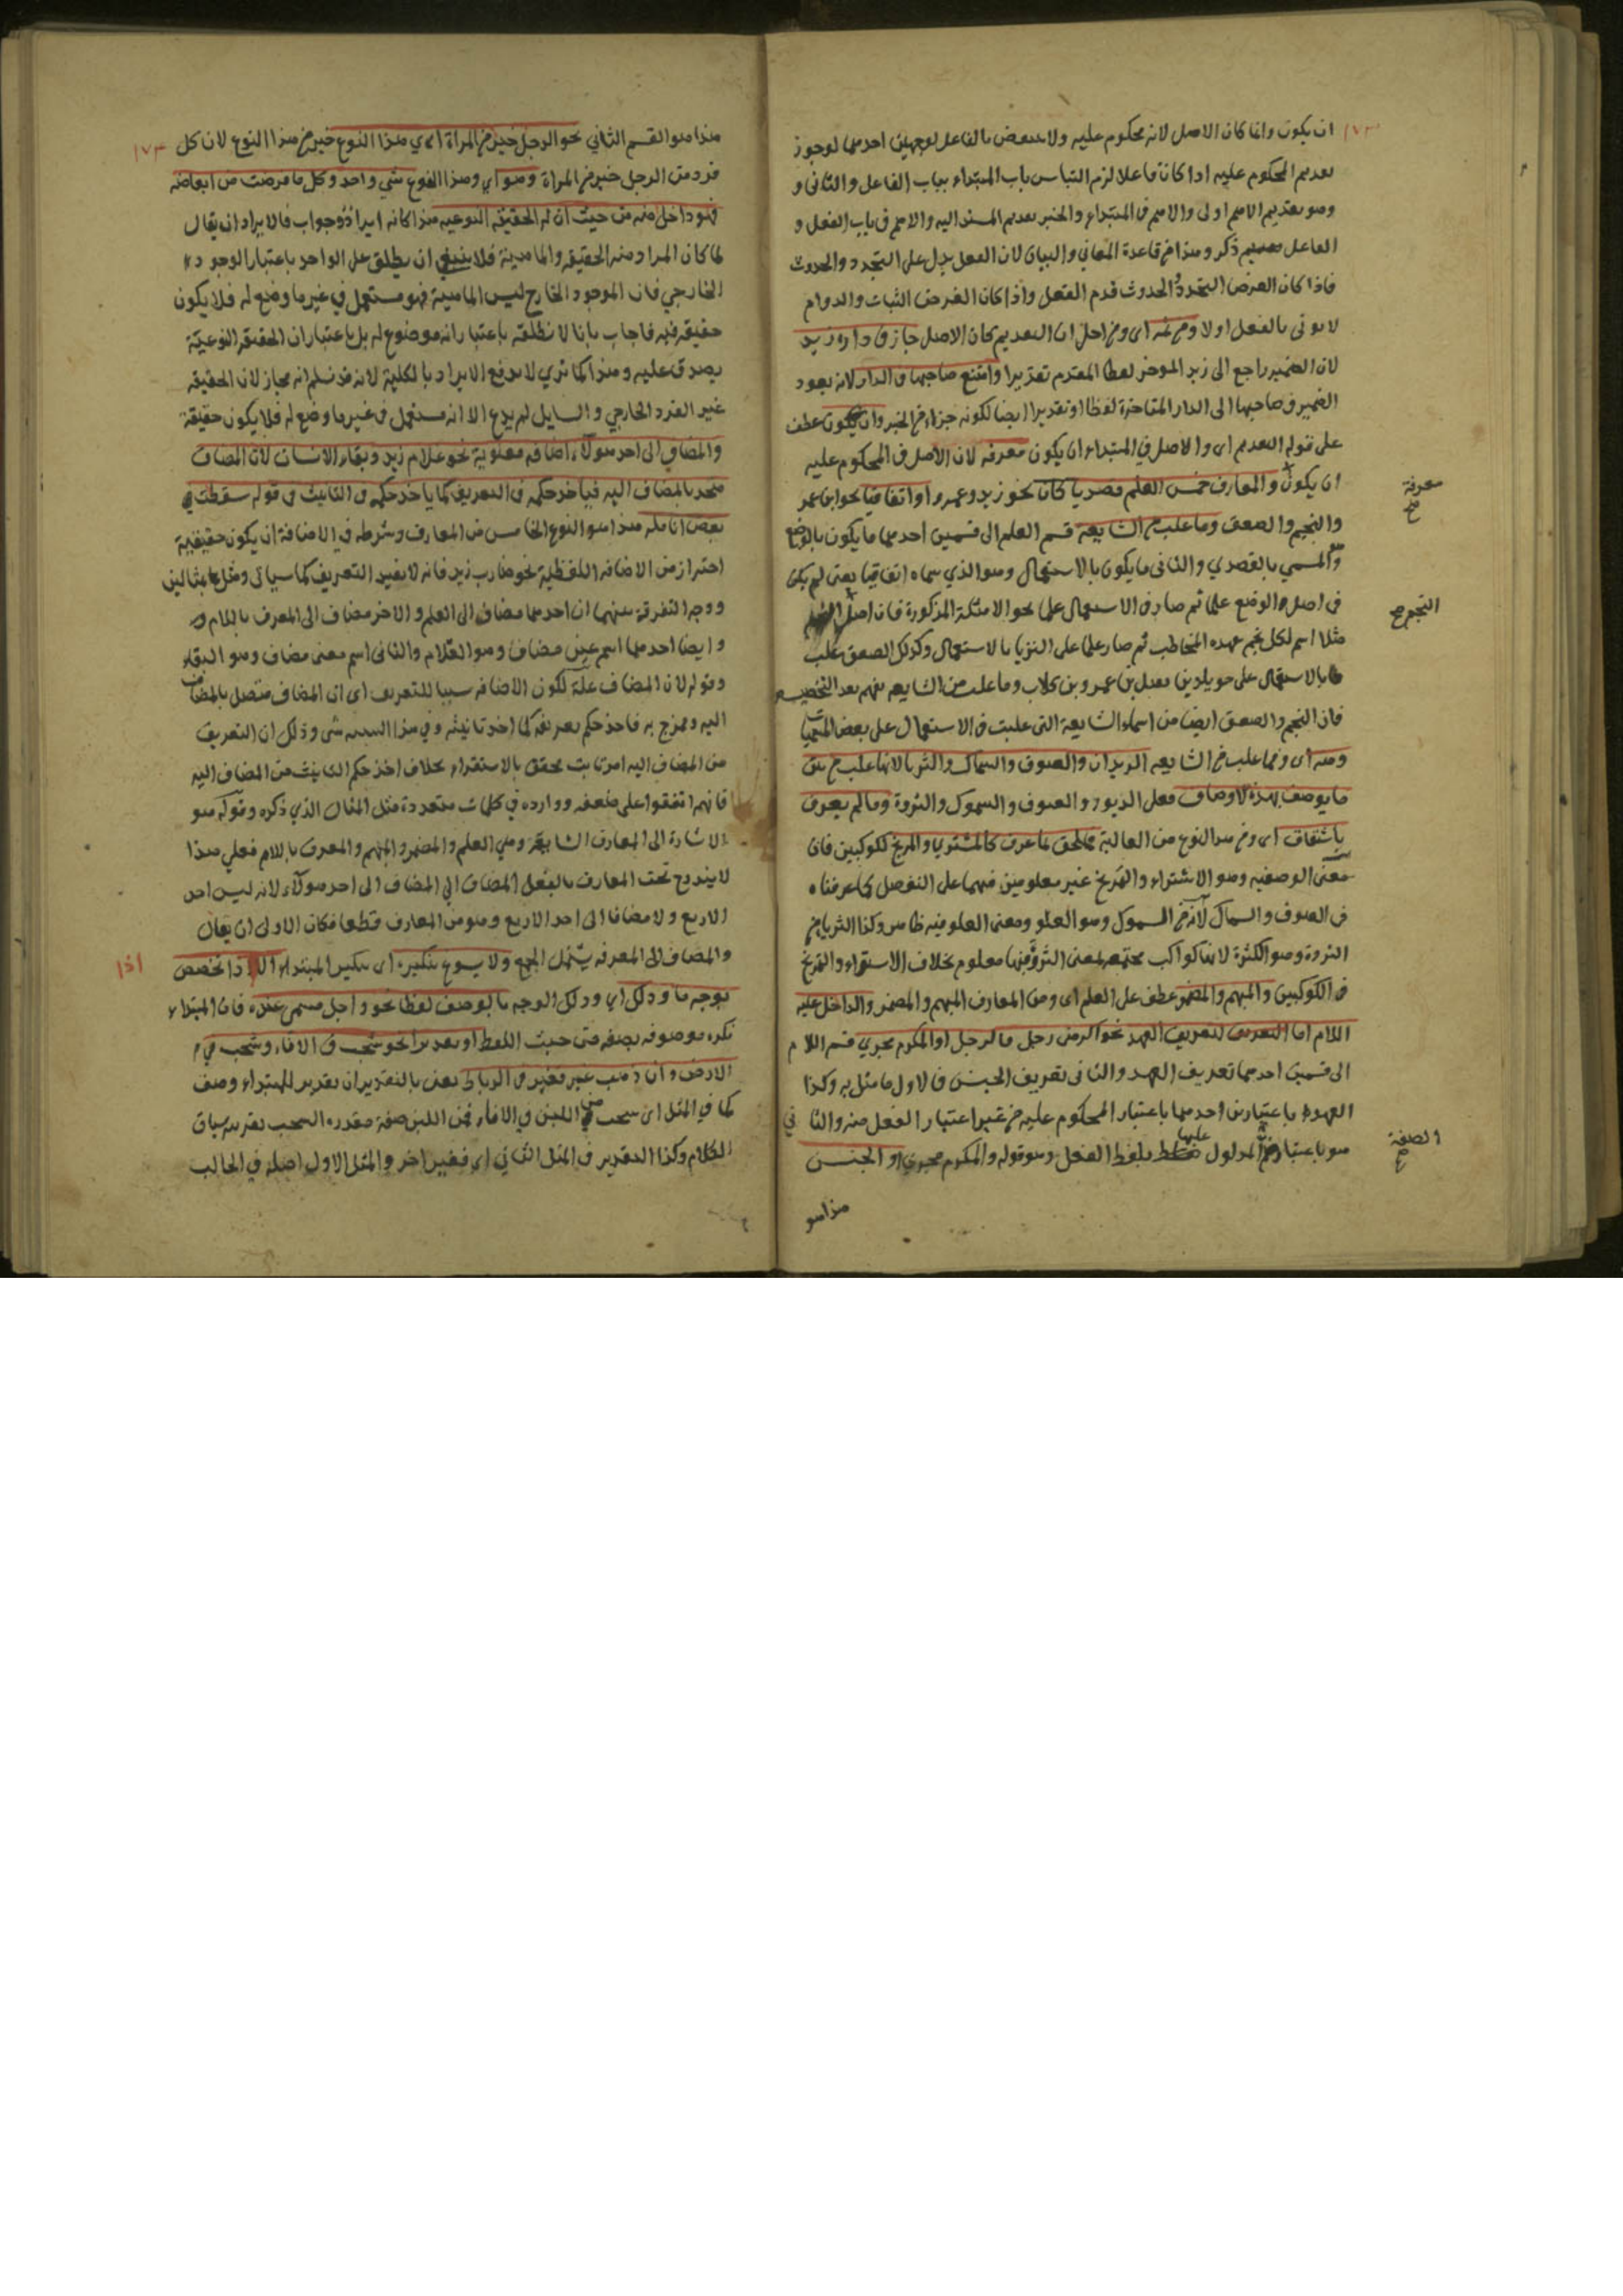 ان يكون وانما كان الاصل لانه محكوم عليه ولا ينتقض بالفاعل لوجهين احدهما لوجوز
تقديم المحكوم عليه اذا كان فاعلا لزم التباس باب المبتداء بباب الفاعل والثانى و
وهو تقديم الاهم اولى والاهم فى المبتداء والخبر تقديم المسند اليه والاهم فى باب الفعل و
الفاعل ذكر وهذا من قاعدة المعاني والبيان لان الفعل يدل على التجدد والحدوث
فاذا كان الغرض التجدد الحدوث قدم الفعل واذا كان الغرض الثبات والدوام
لا يوتى بالفعل اولا ومن ثمه اى ومن اجل ان التقديم كان الاصل جاز فى داره زيد
لان الضمير راجع الى زيد الموخر لفظا المقدم تقديرا وامتنع صاحبها فى الدار لانه يعود
الضمير فى صاحبها الى الدار المتاخرة لفظا وتقديرا ايضا لكونه جزاء من الخبر وان يكون عطف
على قوله التقديم اى والاصل فى المبتداء ان يكون معرفه لان الاصل فى المحكوم عليه
ان يكون والمعارف خمس العلم قصديا كان نحو زيد وعمرو او اتفاقيا نحو ابن عمر
معرفة صح
والنجم والصعق وما غلب من الشايعة قسم العلم الى قسمين احدهما ما يكون بالوضع
وهو المسمي بالقصدي والثانى ما يكون بالاستعمال وهو الذي سماه اتفاقيا يعنى لم يكن
فى اصل الوضع علما ثم صار فى الاستعمال علما نحو الامثلة المذكورة فان اصل
النجم صح
مثلا اسم لكل نجم عهده المخاطب ثم صار علما على الثريا بالاستعمال وكذلك الصعق غلب
بالاستعمال على خويلد بن نفيل بن عمرو بن كلاب وما غلب من الشايعه تعميم بعد التخصيص
فان النجم والصعق ايضا من اسماء الشايعة التى غلبت فى الاستعمال على بعض المسميات
ومنه اى ومما غلب من الشايعه الدبران والعيوق والسماك والثريا لانها غلب من بين
ما يوصف بهذه الاوصاف فعل الدبور والعيوق والسموك والثروة وما لم يعرف
باشتقاق اى ومن هذا النوع من الغالبة فملحق بما عرف كالمشتري والمريخ لكوكبين فان
معنى الوصفيه وهو الاشتراء والمريخ غير معلومين فيهما على التفصيل كما عرفناه
فى العيوق والسماك لانه من السموك وهو العلو ومعنى العلو فيه ظاهر وكذا الثريا من
الثروة وهو الكثرة لانها كواكب مجتمعه فمعنى الثروة فيها معلوم بخلاف الاشتراء والمريخ
فى الكوكبين والمبهم والمضمر عطف على العلم اى ومن المعارف المبهم والمضمر والداخل عليه
اللام اما التعريف لتعريف العهد نحو اكرمنى رجل فالرجل او المكرم نحوي قسم اللام
الى قسمين احدهما تعريف العهد والثانى تعريف الجنس فالاول ما مثل به وكذا
العهود باعتبارين احدهما باعتبار المحكوم عليه من غير اعتبار الفعل منه والثاني
هو باعتبار المدلول عليها بلفظ الفعل وهو قوله والمكرم نحوي او الجنس
الصفة صح
هذا هو
١٧٣
هذا هو القسم الثاني نحو الرجل خير من المراة اي هذا النوع خير من هذا النوع لان كل
فرد من الرجل خير من المراة وهو اي وهذا النوع شي واحد وكل ما فرضت من ابعاضه
فهو داخل فيه من حيث ان له الحقيقة النوعيه هذا كانه ايراد وجواب فالايراد ان يقال
لما كان المراد منه الحقيقه والماهية فلا ينبغي ان يطلق على الواحد باعتبار الوجود
الخارجي فان الموجود الخارج ليس الماهية فهو مستعمل في غير ما وضع له فلا يكون
حقيقه فيه فاجاب بانا لا نطلقه باعتبار انه موضوع له بل باعتبار ان الحقيقه النوعية
يصدق عليه وهذا كما تري لا يدفع الايراد بالكلية لانه قد نسلم انه مجاز لان الحقيقه
غير الفرد الخارجي والسايل لم يدع الا انه مستعمل فى غير ما وضع له فلا يكون حقيقة
والمضاف الى احد هولاء اضافه معنوية نحو غلام زيد وبقاء الانسان لان المضاف
متحد بالمضاف اليه فياخذ حكمه فى التعريف كما ياخذ حكمه فى التانيث فى قوله سقطت
بعض انامله هذا هو النوع الخامس من المعارف وشرطه في الاضافة ان يكون حقيقية
احتراز من الاضافه اللفظية نحو ضارب زيد فانه لا يفيد التعريف كما سياتى ومثل بمثالين
ووجه التفرقة بينهما ان احدهما مضاف الى العلم والاخر مضاف الى المعرف باللام و
وايضا احدهما اسم عين مضاف وهو الغلام والثانى اسم معنى مضاف وهو البقاء
وقوله لان المضاف علة لكون الاضافه سببا للتعريف اى ان المضاف متصل بالمضاف
اليه وممزج به فاخذ حكم تعريفه كما اخذ تانيثه وفي هذا التشبيه شى وذلك ان التعريف
من المضاف اليه امر ثابت محقق بالاستقراء بخلاف اخذ حكم التانيث من المضاف اليه
فانهم اتفقوا على ضعفه ووارده في كلمات متعددة مثل المثال الذي ذكره وقوله هو
الاشارة الى المعارف السابقة وهي العلم والمضمر والمبهم والمعرف باللام فعلي هذا
لا يندرج تحت المعارف بالفعل المضاف الي المضاف الى احد هولاء لانه ليس احد
الاربع ولا مضافا الى احد الاربع وهو من المعارف قطعا فكان الاولى ان يقال
والمضاف الى المعرفه يشمل الجمع ولا يسوغ تنكيره اى تنكير المبتداء الا اذا تخصص
اذا
بوجه ما وذلك اي وذلك الوجه بالوصف لفظا نحو واجل مسمى عنده فان المبتداء
نكره موصوفه بصفه من حيث اللفظ او تقديرا نحو شخب فى الاناء وشخب في
الارض وان ذهب عير فعير فى الرباط يعنى بالتقدير ان تقدير للمبتداء وصف
كما في المثل اى شخب من اللبن في الاناء فمن اللبن صفة مقدره الشخب بقرينه سياق
الكلام وكذا التقدير فى المثل الثاني اي فعير اخر والمثل الاول اصله في الحالب